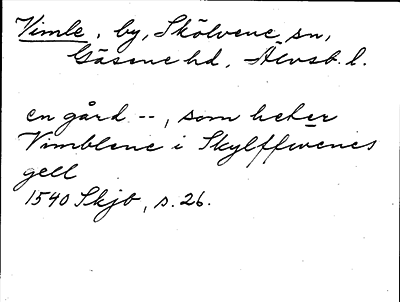 Vimle, by, Skölvene sn,
Gäsene hd, Älvsb. l.
en gård --, som heter
Vimblene i Skylffwenes
gell
1540 Skjb, s. 26.